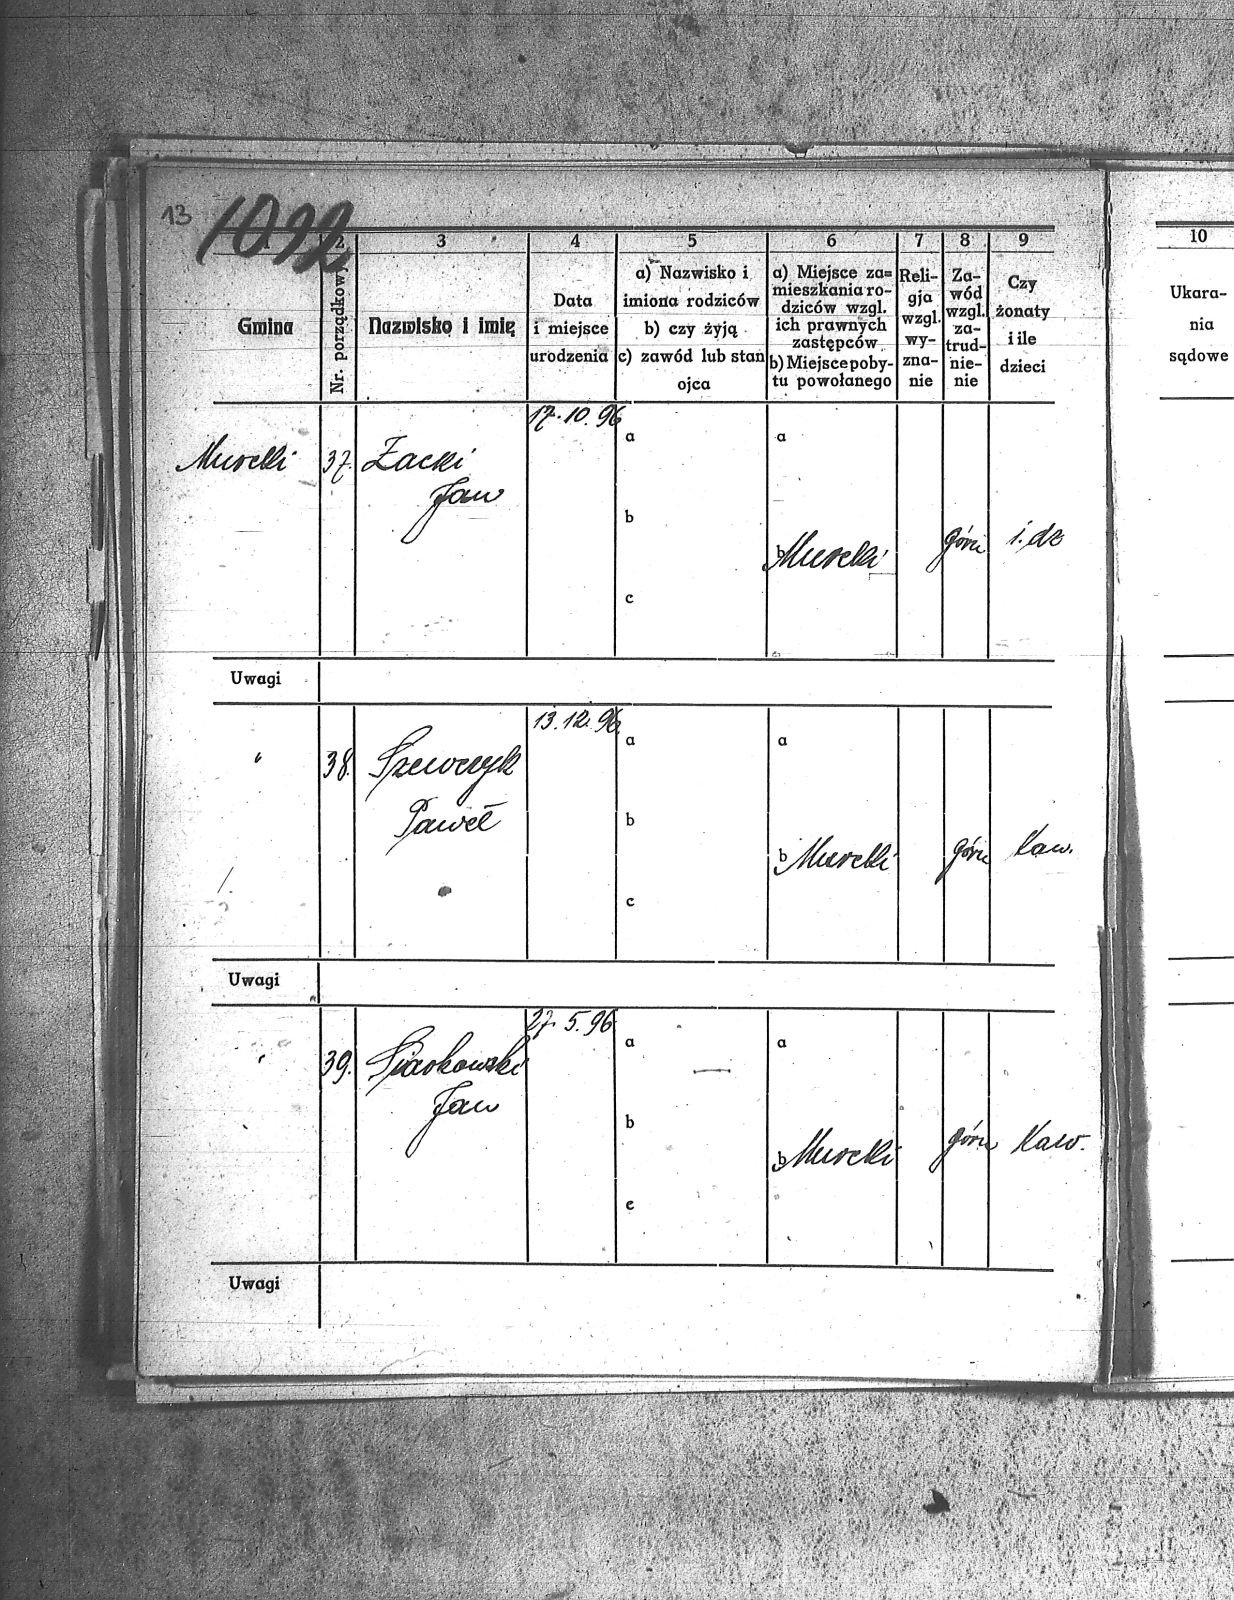 13
1092
1 2 3 4 5 6 7 8 9
Gmina
Nr. porządkowy
Nazwisko i imię
Data
i miejsce
urodzenia
a) Nazwisko i
imiona rodziców
b) czy żyją
c) zawód lub stan
ojca
a) Miejsce za=
mieszkania ro-
dziców wzgl.
ich prawnych
zastępców
b) Miejsce poby-
tu powołanego
Reli-
gja
wzgl.
wy-
zna-
nie
Za-
wód
wzgl.
za-
trud-
nie-
nie
Czy
żonaty
i ile
dzieci
17.10.96
Murcki 37.
Jan
a a
b
b Murcki górn i. dz
c
Uwagi
13.12.96
" 38. Szewczyk
Paweł
a a
b
b Murcki górn Kaw.
c
Uwagi
27.5.96
" 39.
Jan
a a
b
b Murcki górn Kaw.
c
Uwagi
10
Ukara-
nia
sądowe